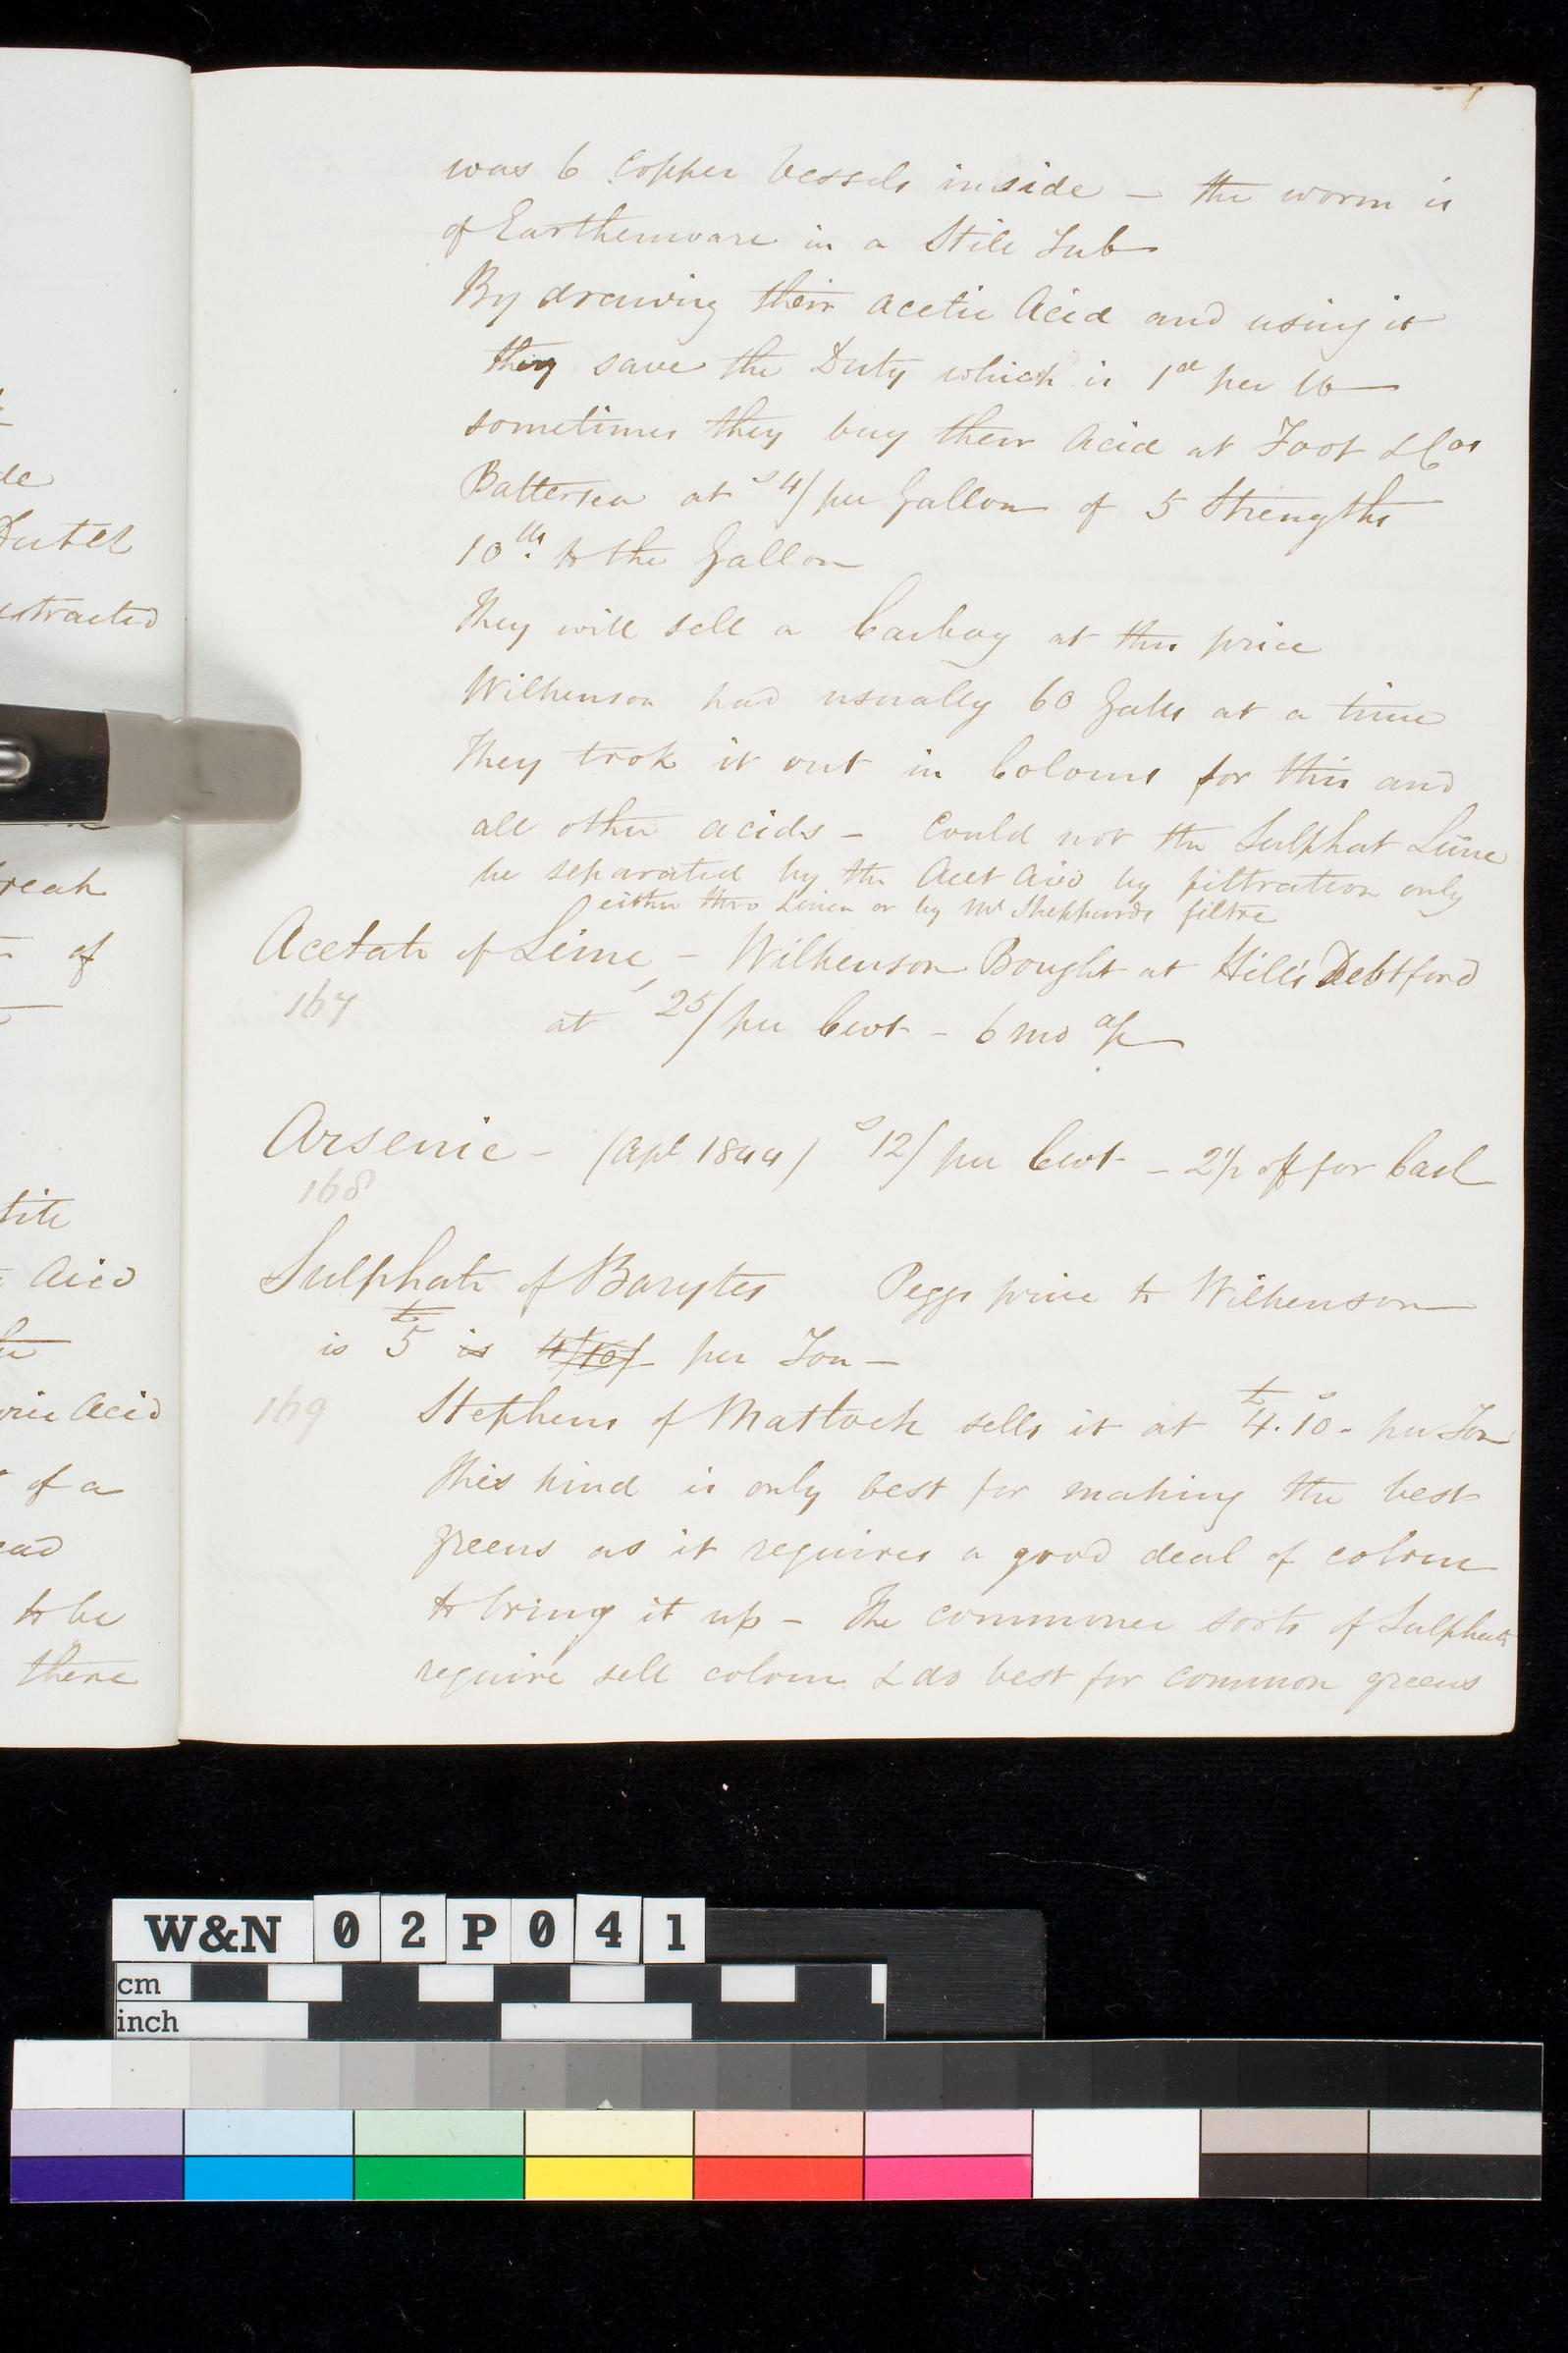 was 6 Copper Vessels inside – the worm is
of Earthenware in a Still Tub
By drawing their Acetic Acid and using it
they save the Duty which is 1d per lb
sometimes they buy their Acid at Foot & Cos
Battersea at s4/ per Gallon of 5 Strengths
10 lbs to the Gallon
They will sell a Carboy at this price
Wilkenson had usually 60 Galls at a time
They took it out in Colours for this and
all other acids – Could not the Sulphat Lime
be separated by the Acet Acid by filtration only
either thro Linen or by Mr Shephards filtre
Acetate of Lime – Wilkenson Bought at Hill's Debtford
167
at s25/ per Cwt – 6 mo
Arsenic – (Apl 1844) s12/ per Cwt – 2½ off for Cash
168
Sulphate of Barytes Peggs price to Wilkenson
is £5 is 4/10/ per Ton –
169
Stephens of Matlock sells it at £4.10s – per Ton
This kind is only best for making the best
greens as it requires a good deal of colour
to bring it up – The commoner sorts of Sulphate
require sell colour & do best for common greens
de
Dutch
extracted
reak
of
tite
Acid
oric Acid
of a
ead
to be
there
W&N 02P041
cm
inch